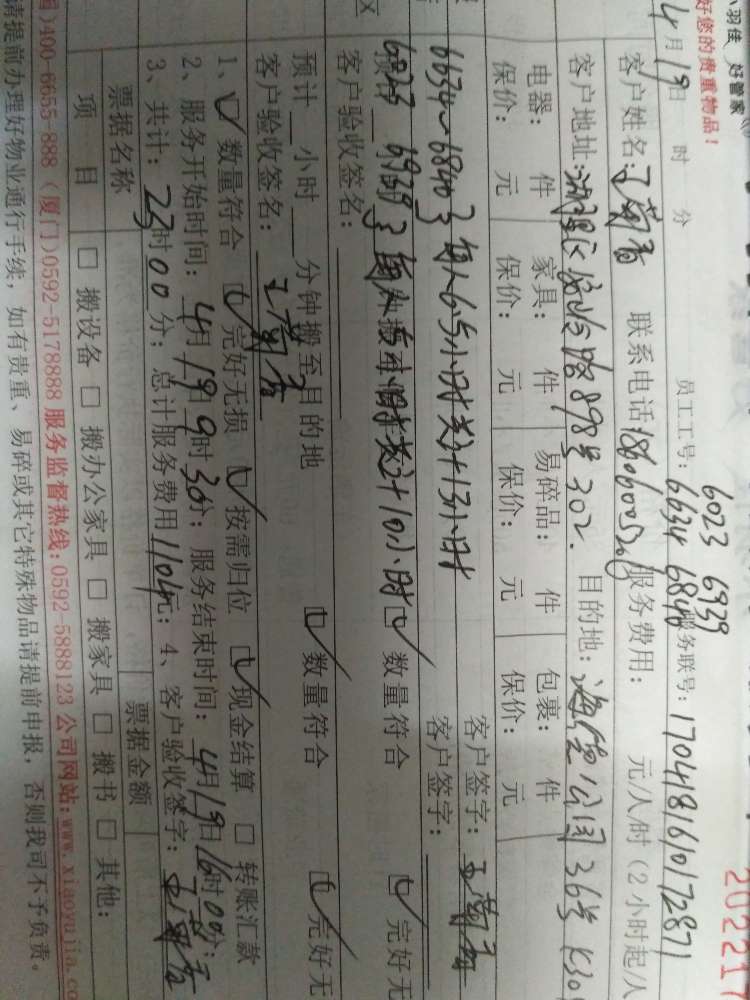 小羽佳 好管家
好您的贵重物品！
202217
4月19日 时 分 员工工号：6023 6939 6634 6840 服务联号：17041816017287
客户姓名： 联系电话 服务费用： 元/人/时（2小时起/人
客户地址： 898号302. 目的地： 公园36号
电器： 件 家具： 件 易碎品： 件 包裹： 件
保价： 元 保价： 元 保价： 元 保价： 元
6634~6840 每人6.5小时 共计+13小时 客户签字：
客户签字：
6023 6939 每人 5小时 共计+10小时 数量符合 完好无
客户验收签名：
预计 小时 分钟搬至目的地 数量符合 完好无
客户验收签名：
1、 数量符合 完好无损 按需归位 现金结算 转账汇款
2、服务开始时间：4月19日9时30分；服务结束时间：4月19日16时00分；
3、共计：23时00分；总计服务费用1104元；4、客户验收签字：
票据名称 票据金额
项 目 搬设备 搬办公家具 搬家具 搬书 其他：
)400-6655-888（厦门)0592-5178888 服务监督热线：0592-5888123 公司网站：www.xiaoyujia.co
请提前办理好物业通行手续，如有贵重、易碎或其它特殊物品请提前申报，否则我司不予负责。